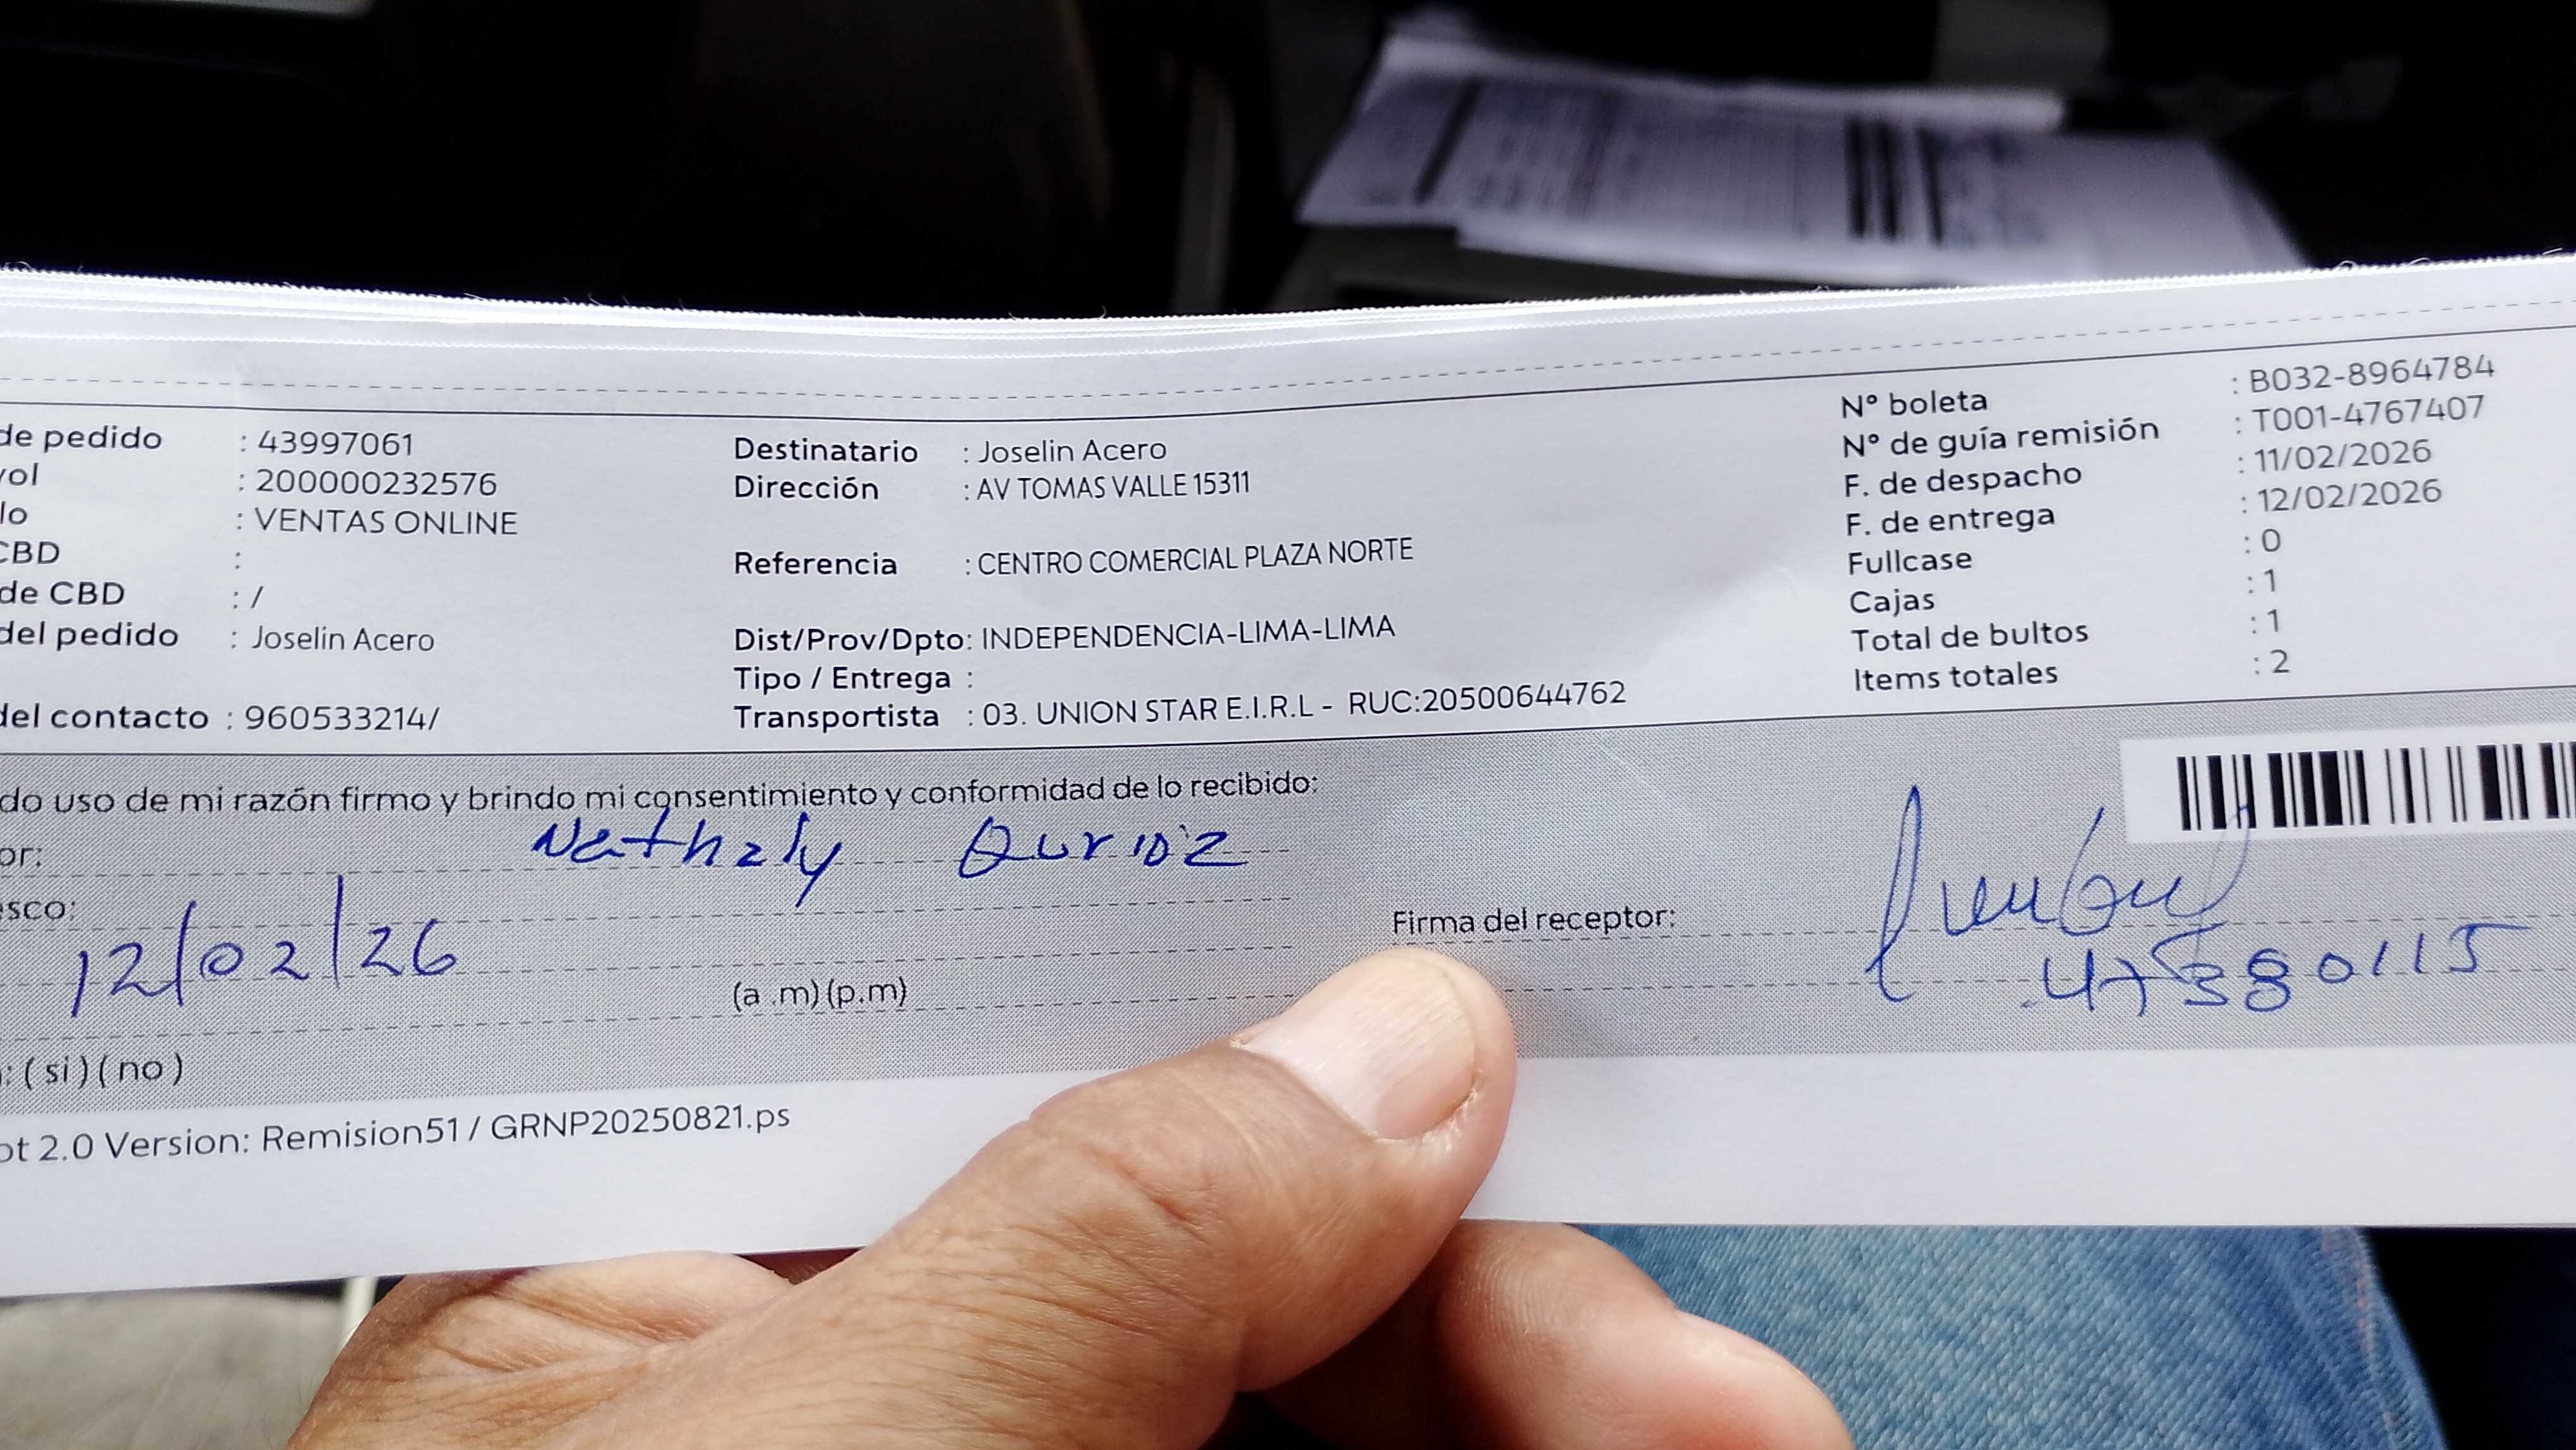 de pedido : 43997061
rol : 200000232576
lo : VENTAS ONLINE
CBD :
de CBD : /
del pedido : Joselin Acero
del contacto : 960533214/
Destinatario : Joselin Acero
Dirección : AV TOMAS VALLE 15311
Referencia : CENTRO COMERCIAL PLAZA NORTE
Dist/Prov/Dpto: INDEPENDENCIA-LIMA-LIMA
Tipo / Entrega :
Transportista : 03. UNION STAR E.I.R.L - RUC:20500644762
N° boleta : B032-8964784
N° de guía remisión : T001-4767407
F. de despacho : 11/02/2026
F. de entrega : 12/02/2026
Fullcase : 0
Cajas : 1
Total de bultos : 1
Items totales : 2
do uso de mi razón firmo y brindo mi consentimiento y conformidad de lo recibido:
or: Nathaly
esco:
12/02/26
(a .m) (p.m)
Firma del receptor:
: ( si ) ( no )
pt 2.0 Version: Remision51 / GRNP20250821.ps